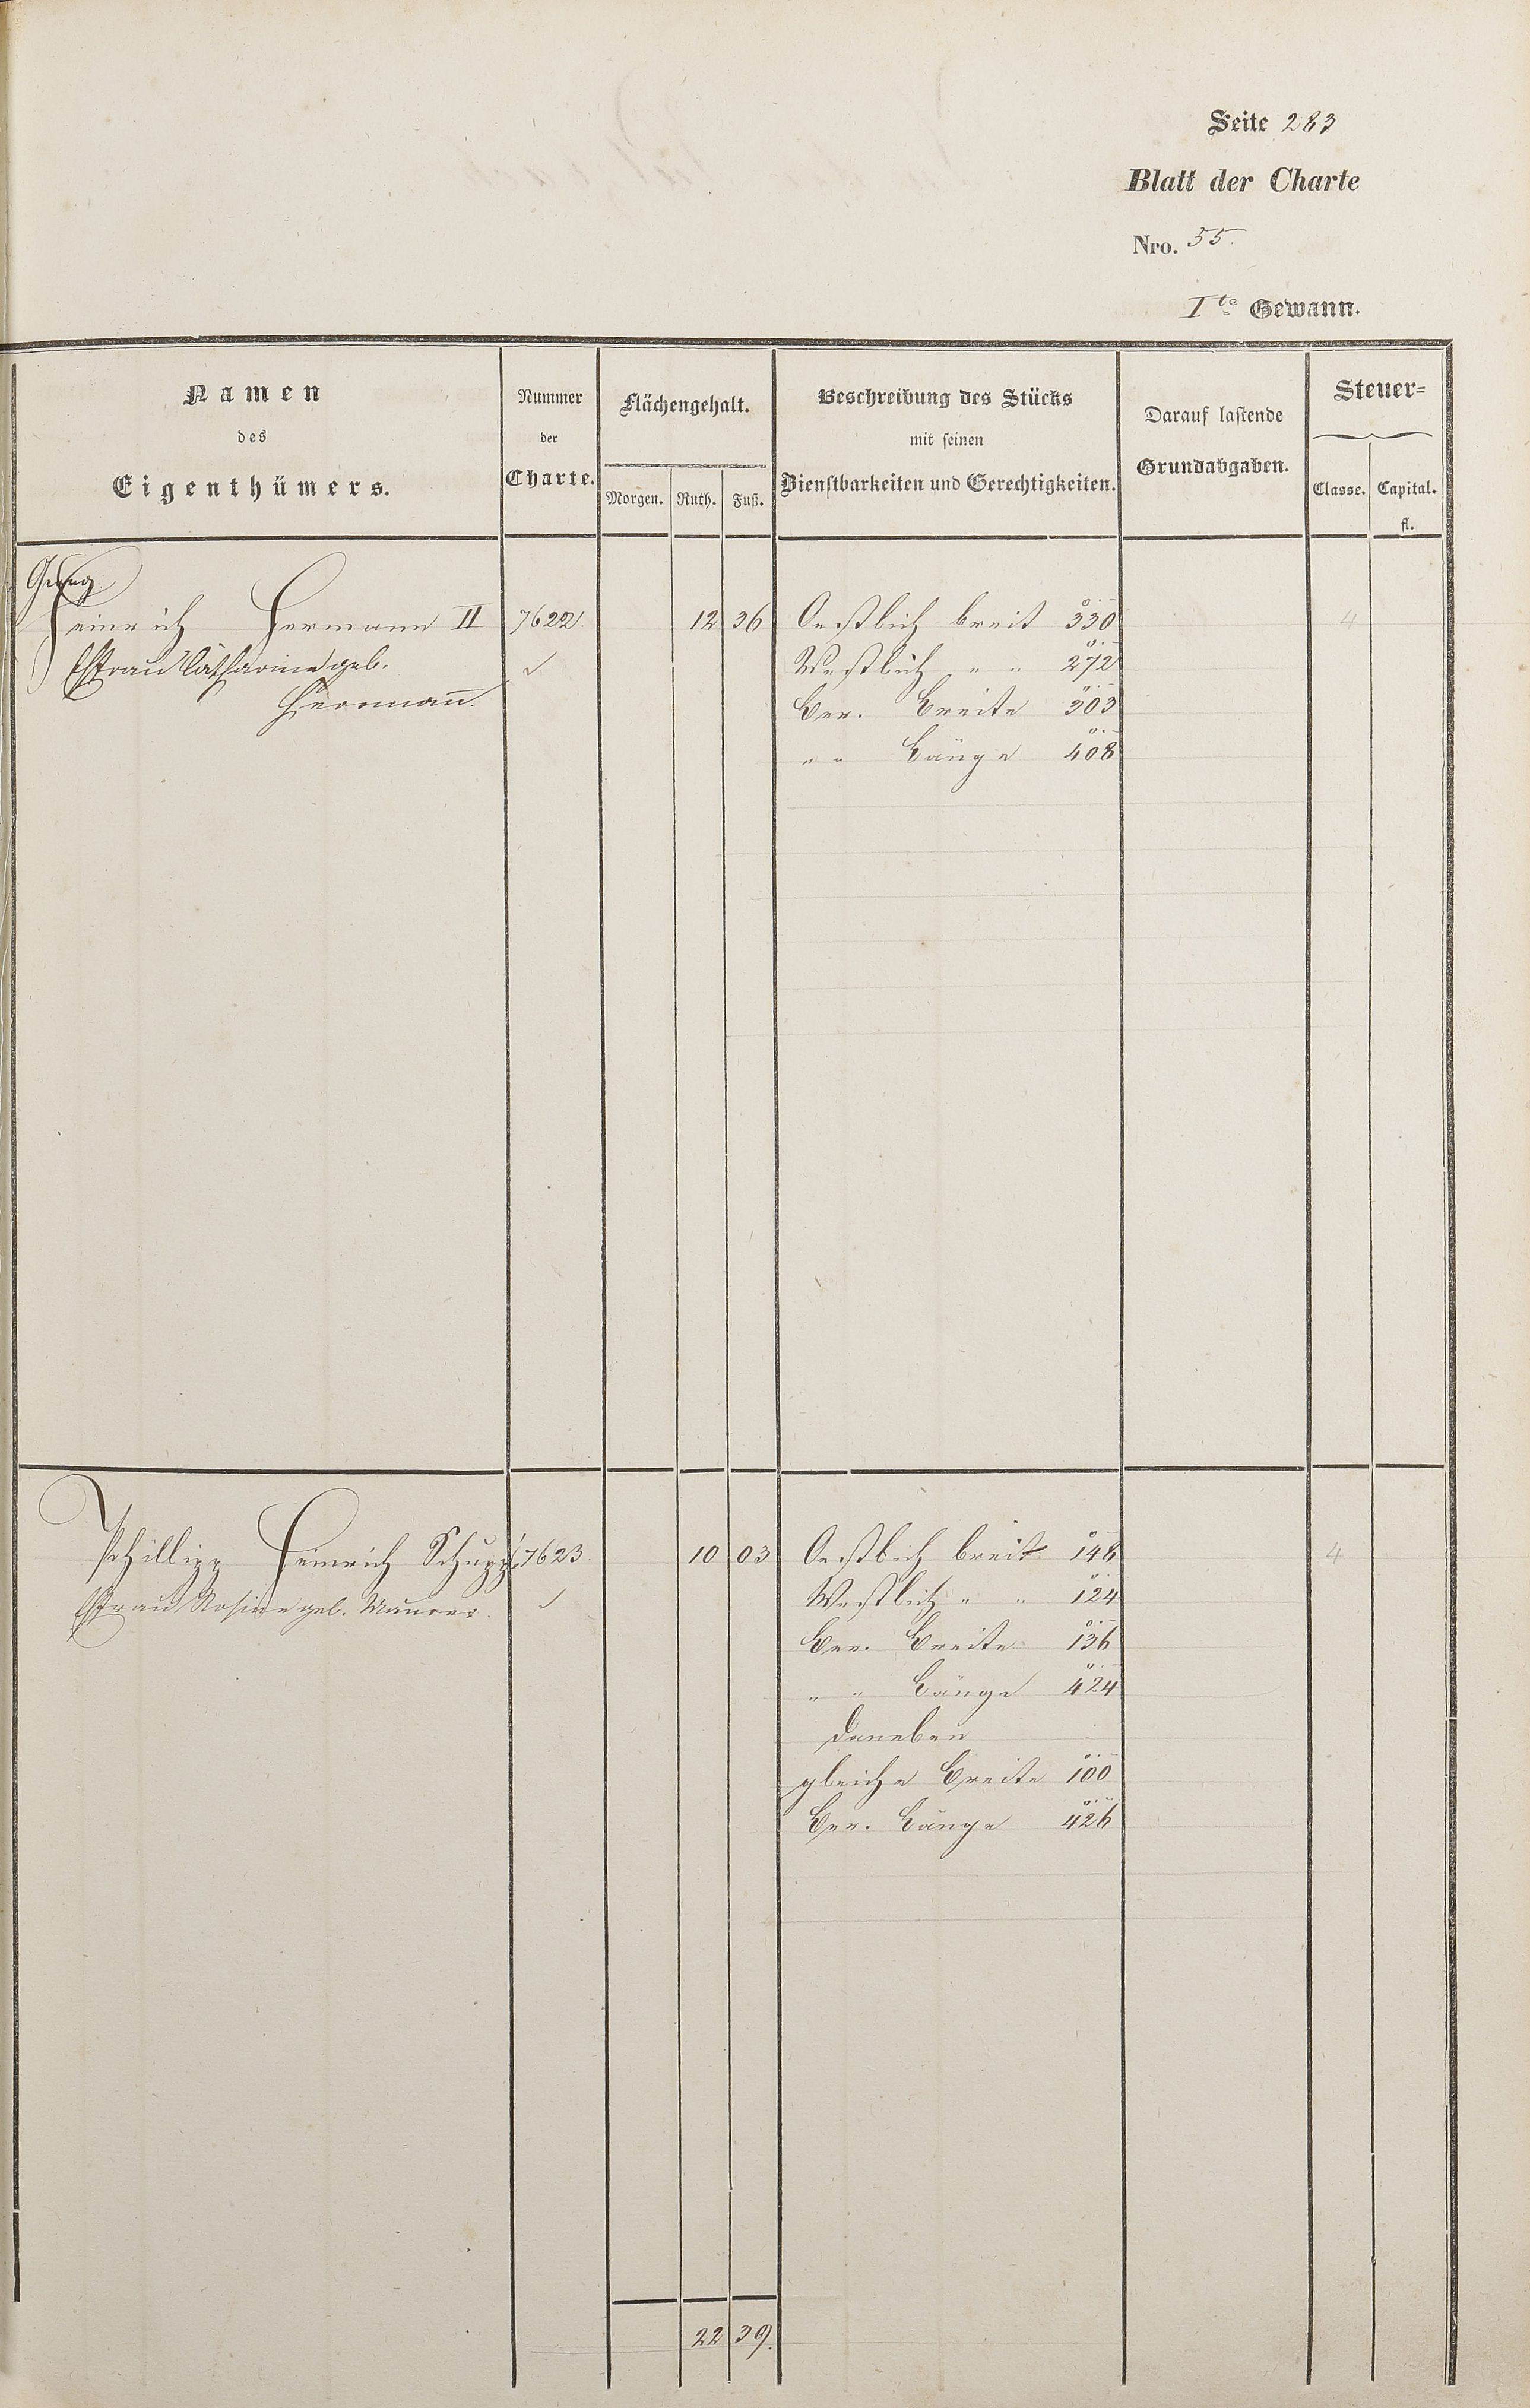 Seite 283
Blatt der Charte
Nro. 55.
Ite Gewann.
Namen
des
Eigenthümers.
Nummer
der
Charte.
Flächengehalt.
Morgen. Ruth. Fuß.
Beschreibung des Stücks
mit seinen
Dienstbarkeiten und Gerechtigkeiten.
Darauf lastende
Grundabgaben.
Steuer=
Classe. Capital.
fl.
Georg
Heinrich Hermann II 7622. 12 36 Oestlich breit 330 4
Ehfrau Catharine geb. ✓ Westlich " " 272
Hermann. Ber. Breite 303
" " Länge 408
Phillipp Heinrich Schupp 7623. 10 03 Oestlich breit 148 4
Ehfrau Rosine geb. Maurer. ✓ Westlich " " 124
Ber. Breite 136
" " Länge 424
daneben
gleiche Breite 100
Ber. Länge 426
22 39.